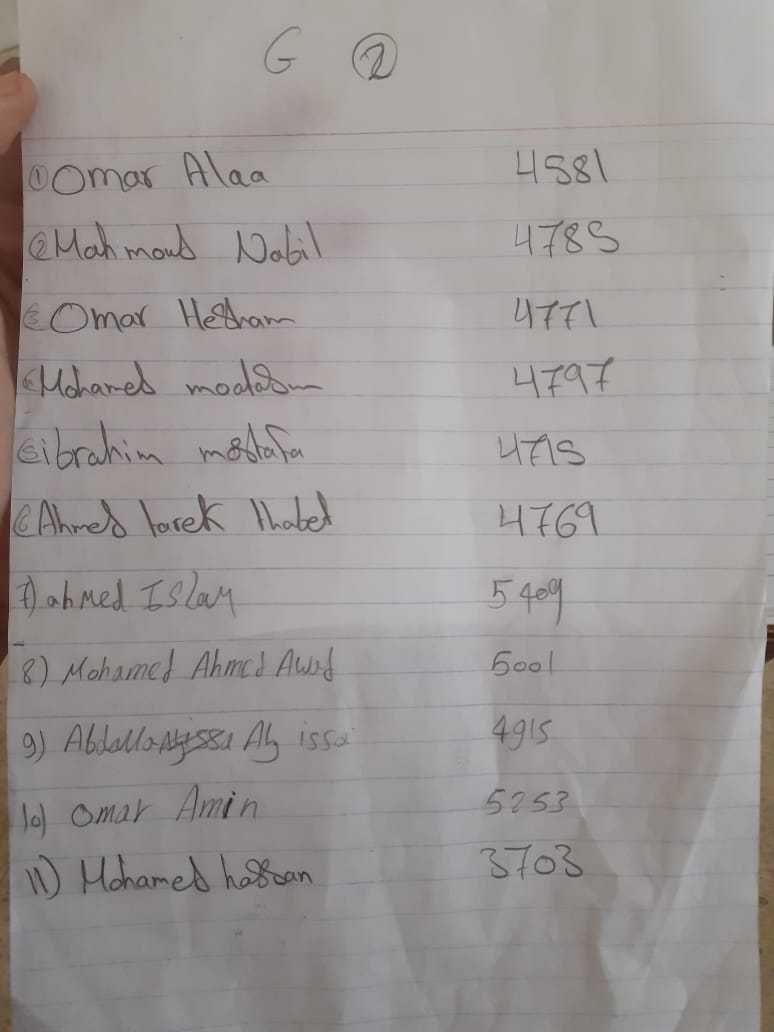 G ②
① Omar Alaa 4581
② Mahmoud Nabil 4785
③ Omar Hesham 4771
④ Mohamed 4797
⑤ ibrahim mostafa 4715
⑥ Ahmed tarek thabet 4769
7) ahmed ISlam 5409
8) Mohamed Ahmed Awad 5001
9) Abdalla issa 4915
10) Omar Amin 5253
11) Mohamed hassan 3703